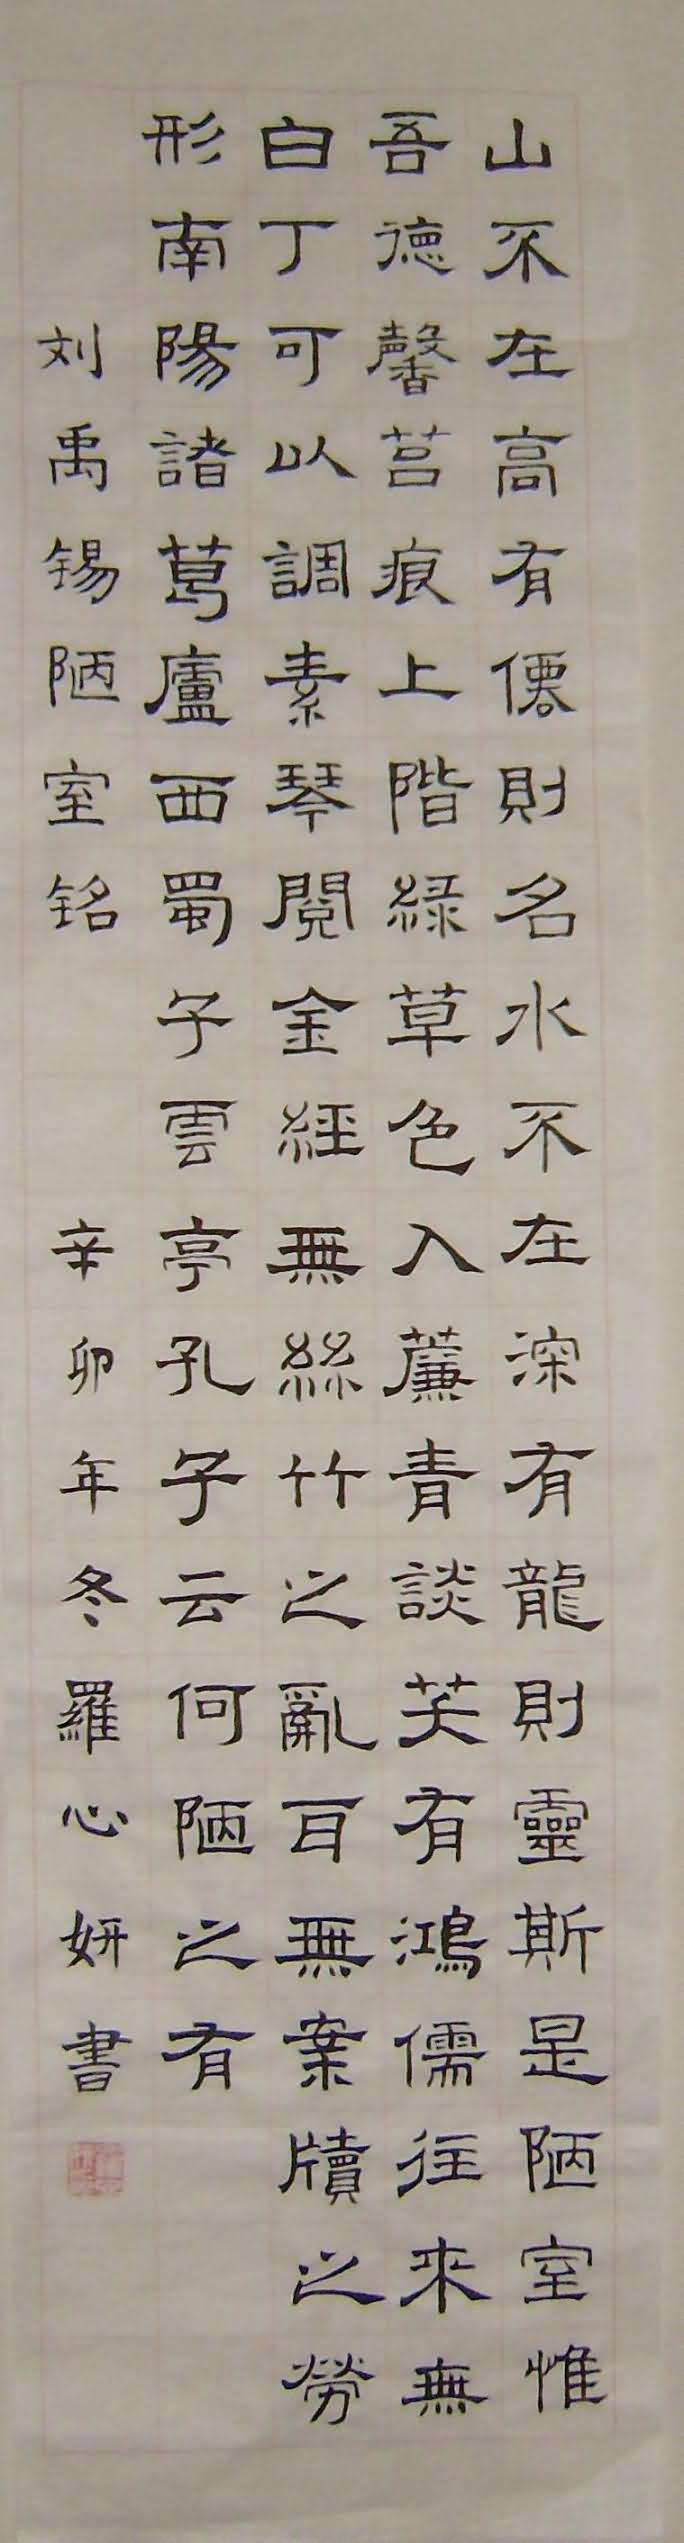 山不在高有僊則名水不在深有龍則靈斯是陋室惟
吾德馨苔痕上階緑草色入薕青談芺有鴻儒往来無
白丁可以調素琴閱金經無絲竹之亂耳無案牘之勞
形南陽諸葛廬西蜀子雲亭孔子云何陋之有
刘禹锡陋室铭 辛卯年冬羅心妍書